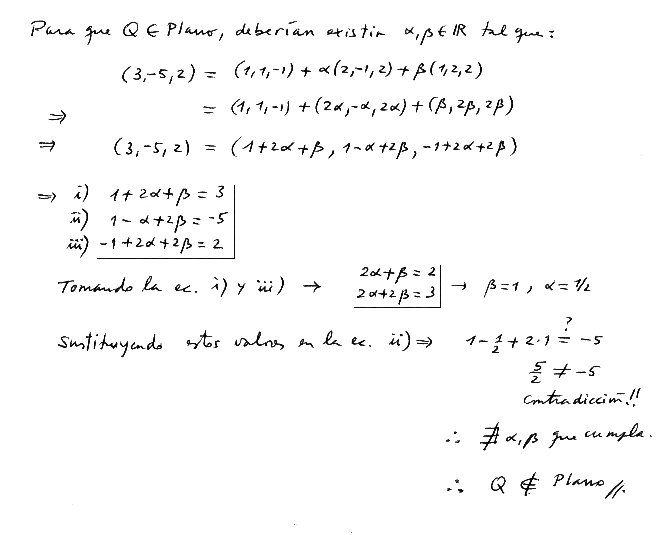 Para que Q ∈ Plano, deberían existir α, β ∈ IR tal que:
(3,-5,2) = (1,1,-1) + α(2,-1,2) + β(1,2,2)
⇒ = (1,1,-1) + (2α,-α,2α) + (β,2β,2β)
⇒ (3,-5,2) = (1+2α+β, 1-α+2β, -1+2α+2β)
⇒ i) 1+2α+β = 3
ii) 1-α+2β = -5
iii) -1+2α+2β = 2
Tomando la ec. i) y iii) → 2α+β = 2
2α+2β = 3 → β=1, α=1/2
Sustituyendo estos valores en la ec. ii) ⇒ 1-1/2+2·1 =? -5
5/2 ≠ -5
Contradicción!!
∴ ∄ α, β que cumpla.
∴ Q ∉ Plano //.